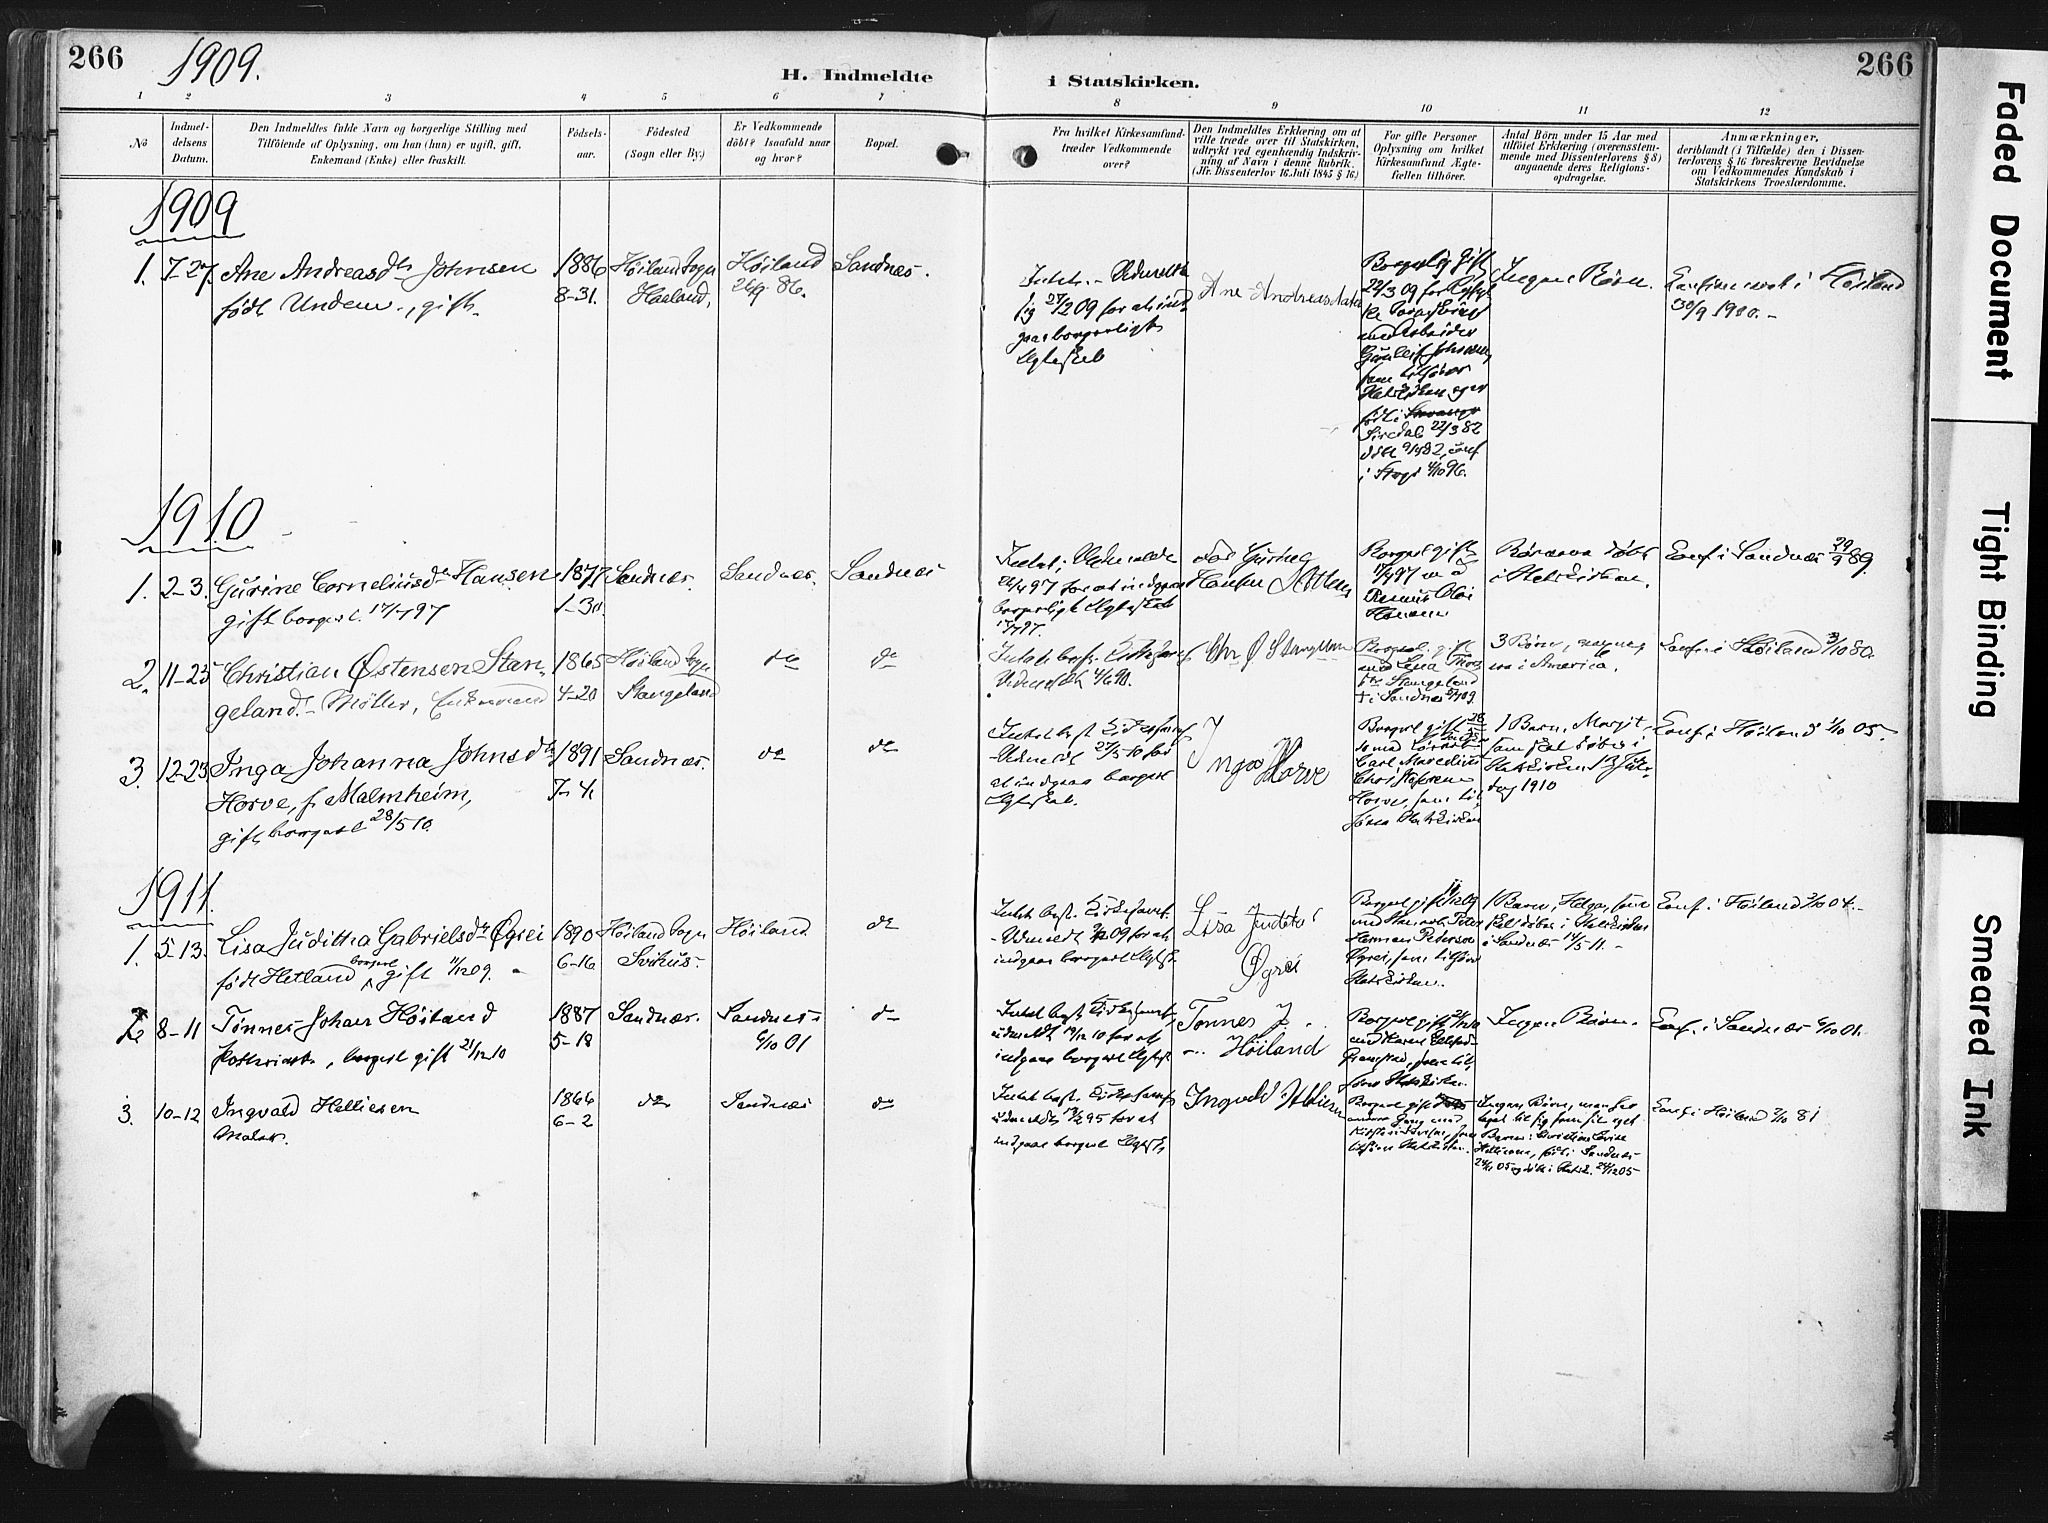 266
1909.
H. Indmeldte
i Statskirken.
266
1
2
3
4
5
6
7
8
9
10
11
12
No
Indmel-
delsens
Datum.
Den Indmeldtes fulde Navn og borgerlige Stilling med
Tilføiende af Oplysning, om han (hun) er ugift, gift,
Enkemand (Enke) eller fraskilt.
Fødsels-
aar.
Fødested
(Sogn eller By.)
Er Vedkommende
døbt? Isaafald naar
og hvor?
Bopæl.
Fra hvilket Kirkesamfund
træder Vedkommende
over?
Den Indmeldtes Erklæring om at
ville træde over til Statskirken,
udtrykt ved egenhændig Indskriv-
ning af Navn i denne Rubrik.
(Jfr. Dissenterlov 16. Juli 1845 § 16.)
For gifte Personer
Oplysning om hvilket
Kirkesamfund Ægte-
fællen tilhører.
Antal Børn under 15 Aar med
tilføiet Erklæring (overensstem-
mende med Dissenterlovens § 8)
angaaende deres Religions-
opdragelse.
Anmærkninger,
deriblandt (i Tilfælde) den i Dissen-
terlovens § 16 foreskrevne Bevidnelse
om Vedkommendes Kundskab i
Statskirkens Troeslærdomme.
1909
1. 7-27. Ane Andreasdtr Johnsen
født Undem, gift.
1886
8-31.
Høiland Sogn
Haaland.
Høiland
26/9 86.
Sandnes.
Intet. Udmeldte
sig 27/2 09 for at ind-
gaa borgerligt
Ægteskab
Ane Andreasdatter
Borgerlig Gift
22/3 09
med Arbeider
som tilhører
Statskirken og er
født i Stavanger
Siredal 22/3 82
Ingen Børn.
Konfirmeret i Høiland
30/9 1900.
1910
1. 2-3. Gurine Corneliusdtr Hansen
gift borgerl. 17/7 97
1877
1-30.
Sandnes.
Sandnes.
Sandnes
Intet. Udmeldt
for at indgaa
borgerligt Ægteskab
17/7 97.
Borgerl. gift
17/7 97 m
Børnene døbt
i Statskirken.
Conf. i Sandnes 29/9 89.
2. 11-25 Christian Østensen Stan-
geland. Møller, Enkemand
1865
4-20
Høiland Sogn
Stangeland
do
do
Intet best. Kirkesamf.
Udmeldt
Chr Ø Stangeland
Borgerl. gift
Stangeland
i Sandnes
3 Børn,
i America.
Conf. i Høiland 3/10 80.
3. 12-23 Inga Johanna Johnsdtr
Horve, f. Malmheim,
gift borgerl 28/5 10.
1891
7-4.
Sandnes.
do
do
Intet best Kirkesamf.
Udmeldt 27/5 10 for
at indgaa borgerl
Ægteskab.
Inga Horve
Borgerl gift 28/5
Carl Marcelius
Christophersen
Horve, som til-
hører Statskirken
1 Barn, Margit,
som skal døbes i
Statskirken
dag 1910
Conf. i Høiland 1/10 05.
1911.
1. 5-13. Lisa Juditha Gabrielsdtr Øgrei
født Hetland, borgerl gift 11/12 09.
1890
6-16
Høiland Sogn
Svihus.
Høiland
do
Intet best. Kirkesamf.
Udmeldt for at
indgaa borgerl Ægtesk.
Lisa Juditha
Øgrei
Borgerl gift
Herman Pedersen
Øgrei, som tilhører
Statskirken.
1 Barn, Helga, som
skal døbes i Statskirken
i Sandnes 14/5-11.
Conf. i Høiland 2/10 04.
2. 8-11 Tønnes Johan Høiland
borgerl gift 21/12 10
1887
5-18
Sandnes.
Sandnes
6/10 01
do
Intet best Kirkesamf.
udmeldt 19/12 10 for at
indgaa borgerl Ægtesk
Tønnes J.
Høiland
Borgerl gift
som til-
hører Statskirken.
Ingen Børn.
Conf. i Sandnes 6/10 01.
3. 10-12 Ingvald Helliesen
Maler.
1866
6-2
do
Sandnes
do
Intet best. Kirkesamf
udmeldt for at
indgaa borgerl Ægtesk.
Ingvald Helliesen
Borgerl gift
anden Gang med
som
tilhører Statskirken.
Ingen Børn, men har
taget til sig som sit eget
Barn: Christian
Helliesen, født i Sandnes
Conf. i Høiland 2/10 81
Faded Document
Tight Binding
Smeared Ink